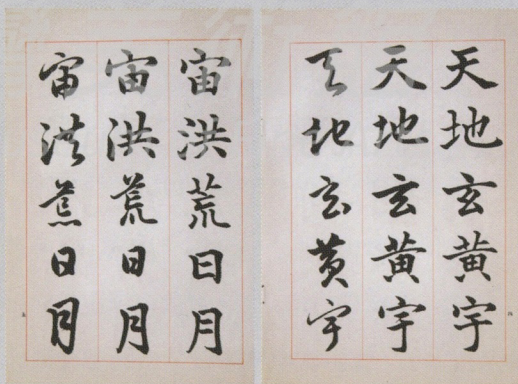 天地玄黄宇
天地玄黄宇
天地玄黄宇
宙洪荒日月
宙洪荒日月
宙洪荒日月